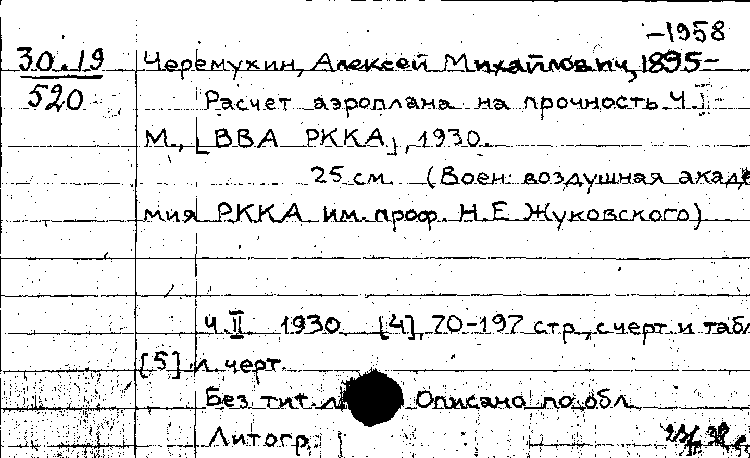 -1958
30.19 Черемухин, Алексей Михайлович, 1895-
520 Расчет аэроплана на прочность. Ч. I-
М., [ВВА РККА], 1930.
25 см. (Воен. воздушная акаде
мия РККА им. проф. Н.Е. Жуковского)
Ч. II 1930 [4], 70-197 стр., с черт и табл
[5] л. черт.
Без тит. л. Описано по обл.
Литогр.